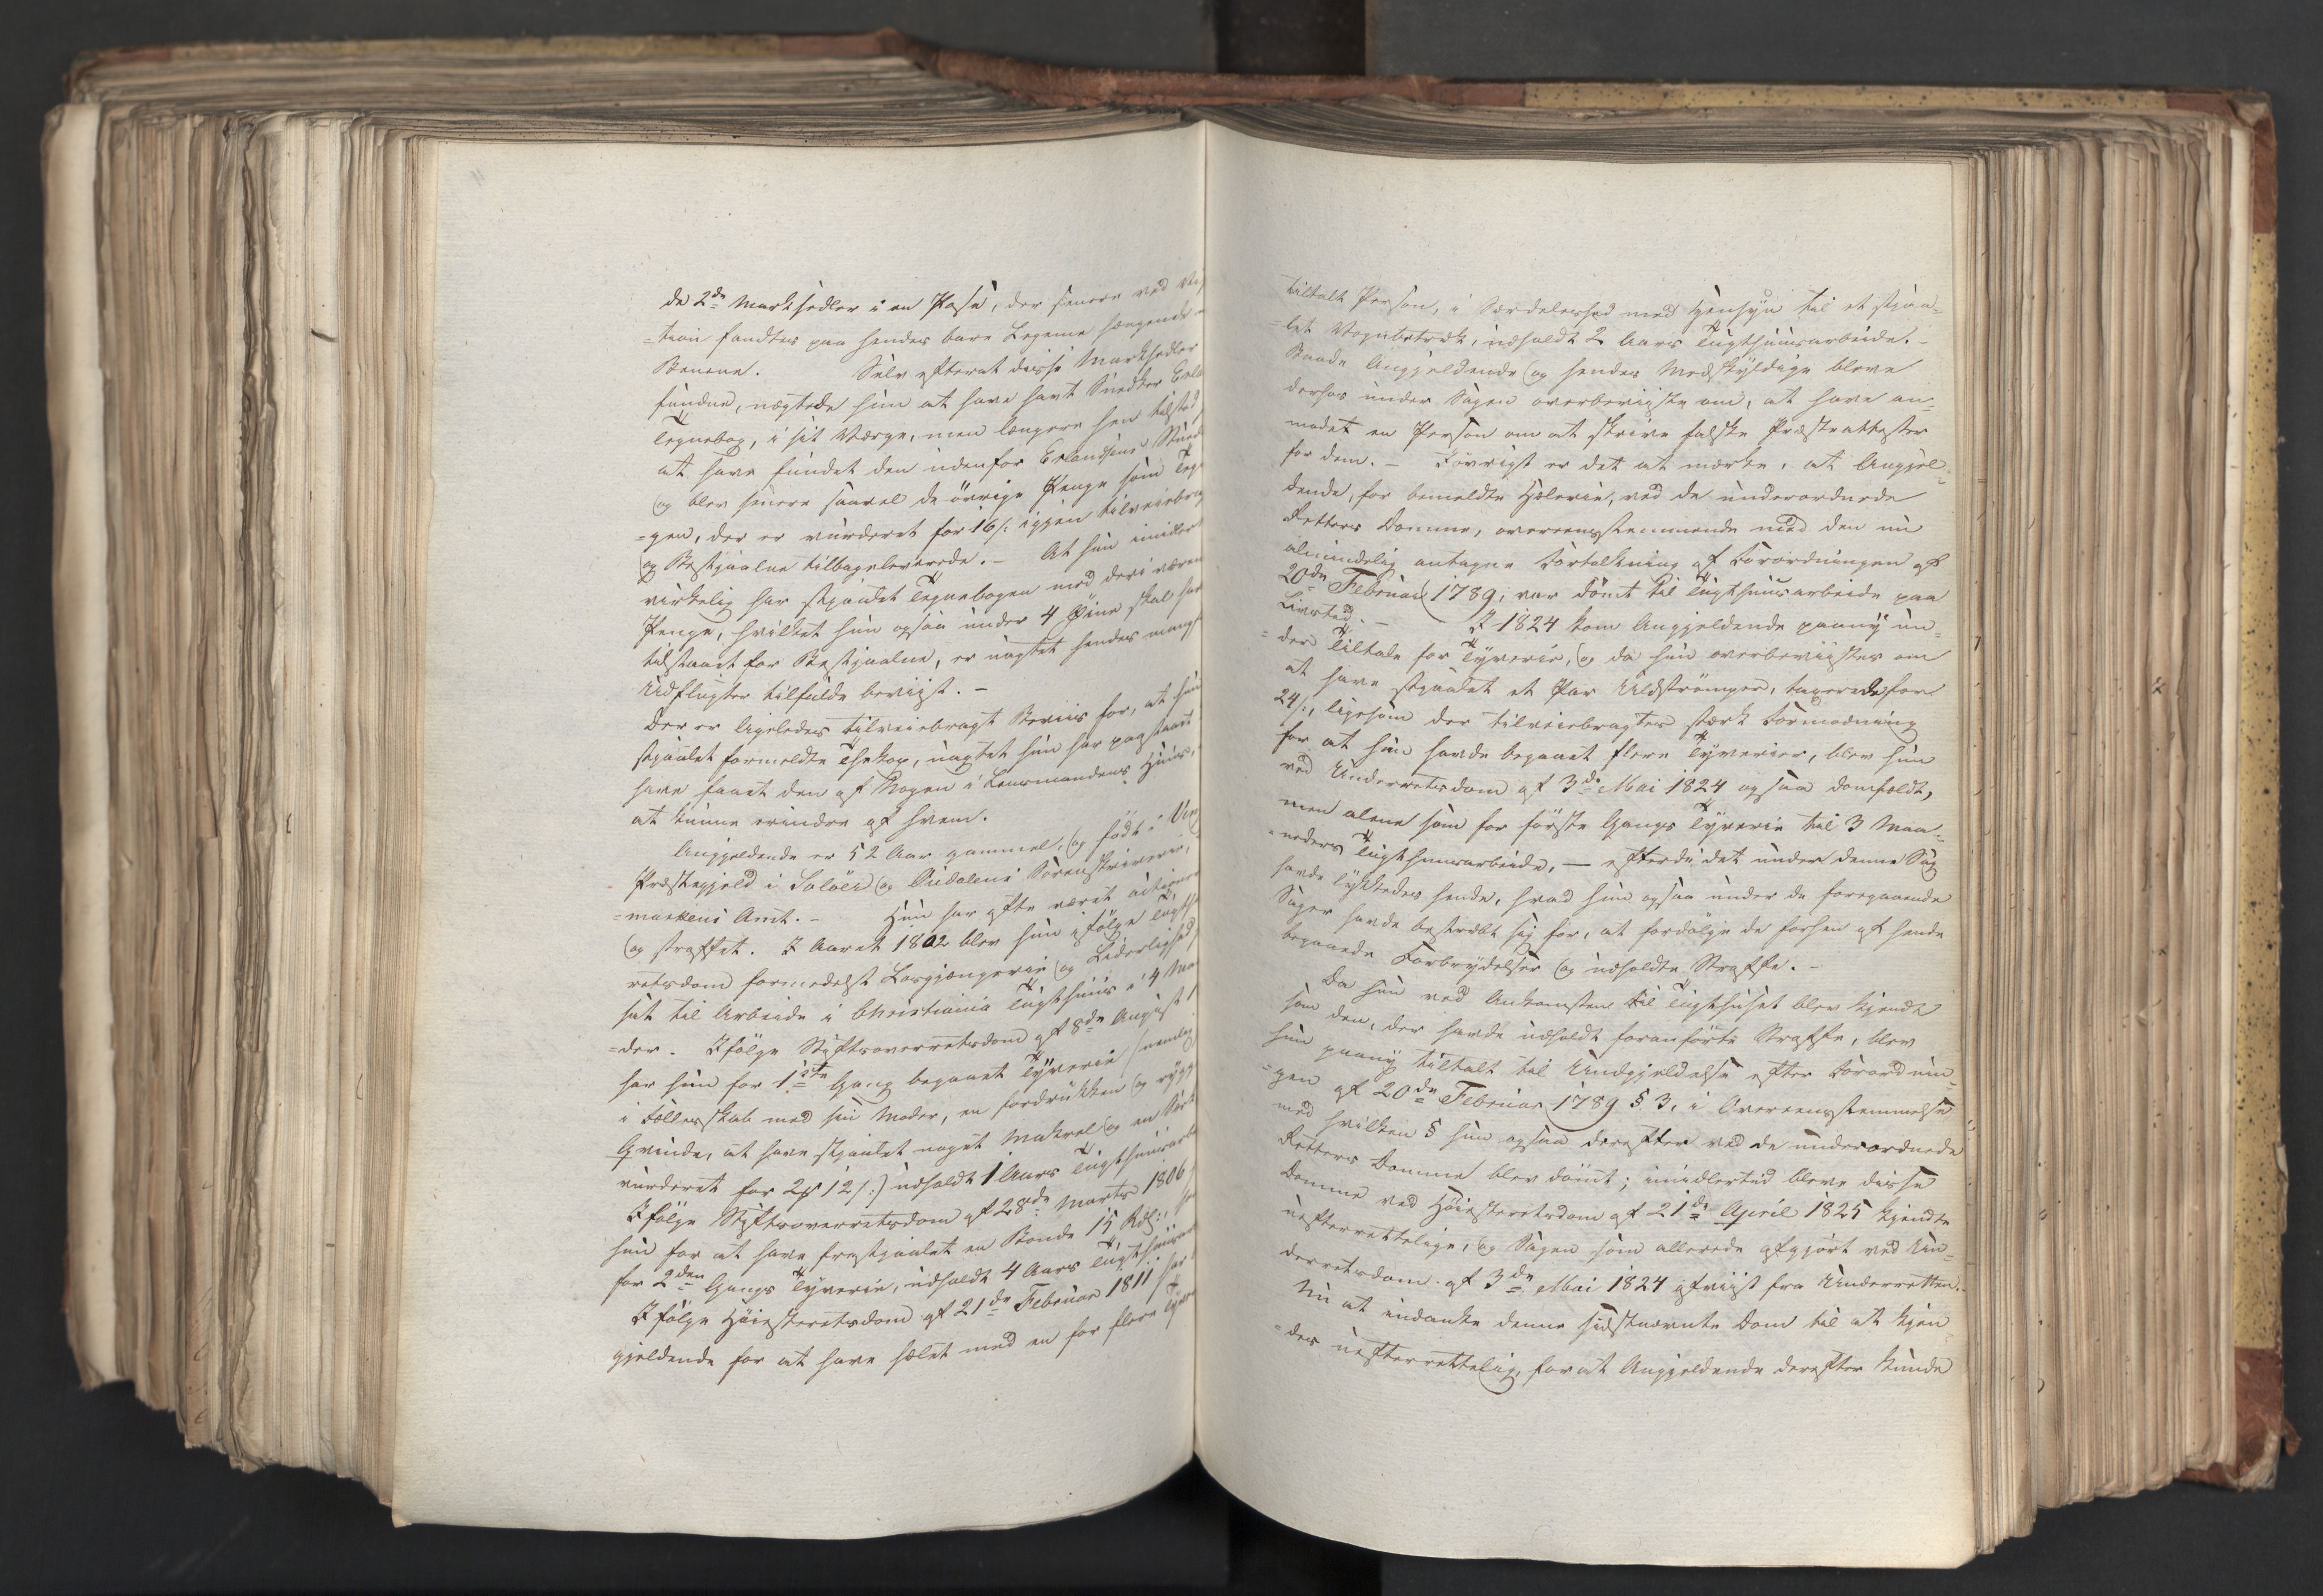 de 2de Marksedler i en Pose, der senere ved Vis
=tion fandtes paa hendes bare Legeme hængende
Benene. Selv efterat disse Marksedler
fundne, nægtede hun at have havt Snedker Erla
Tegnebog, i sit Værge, men længere hen tilstod
at have fundet den udenfor Erlandsens
og blev senere saavel de övrige Penge som Teg
=gen, der er vurderet for 16 s: igjen tilveiebrag
og Bestjaalne tilbageleverede. – At hun imidler
virkelig har stjaalet Tegnebogen med deri væren
Penge, hvilket hun ogsaa under 4 Öine skal hav
tilstaaet for Bestjaalne, er uagtet hendes mange
Udflugter tilfulde beviist. –
Der er ligeledes tilveiebragt Beviis for, at hun
stjaalet formeldte Theekop, uagtet hun har paastaaet
have faaet den af Nogen i Lensmandens Huus,
at kunne erindre af hvem.
Angjeldende er 52 Aar gammel, og födt i Vin
Præstegjeld i Solöer og Oudalens Sorenskriverie,
=markens Amt. – Hun har ofte været actioner
og straffet. I Aaret 1802 blev hun ifölge Lagth
retsdom formedelst Lösgjængerie og Liderlighed
sat til Arbeide i Christiania Tugthuus i 4 Maa
=der. Ifölge Stiftsoverretsdom af 8de August 1
har hun for 1ste Gang begaaet Tyverie (nemlig
i Fællesskab med sin Moder, en fordrukken og rygg
Qvinde, at have stjaalet noget Makrel og en
vurderet for 2 12 s:) udholdt 1 Aars Tugthuusarb
Ifölge Stiftsoverretsdom af 28de Marts 1806
hun for at have frastjaalet en Bonde 15 Rdl:,
for 2den Gangs Tyverie, udholdt 4 Aars Tugthuusar
Ifölge Höiesteretsdom af 21de Februar 1811 har
gjeldende for at have hælet med en for flere Tyve
tiltalt Person, i Særdeleshed med Hensyn til et stjaa=
=let Vognbetræk, udholdt 2 Aars Tugthuusarbeide. –
Baade Angjeldende og hendes Medskyldige bleve
derhos under Sagen overbeviiste om, at have an=
modet en Person om at skrive falske Præsteattester
for dem. – Iövrigt er det at mærke, at Angjel=
dende, for bemeldte Hælerie, ved de underordnede
Retters Domme, overeensstemmende med den nu
almindelig antagne Fortolkning af Forordningen af
20de Februar 1789, var dömt til Tugthuusarbeide paa
Livstid. – I 1824 kom Angjeldende paany un=
=der Tiltale for Tyverie, og da hun overbeviistes om
at have stjaalet et Par Uldströmper, taxerede for
24 s:, ligesom der tilveiebragtes stærk Formodning
for at hun havde begaaet flere Tyverier, blev hun
ved Underretsdom af 3de Mai 1824 ogsaa domfældt,
men alene som for förste Gangs Tyverie til 3 Maa=
=neders Tugthuusarbeide, – efterdi det under denne Sag
havde lykkedes hende, hvad hun ogsaa under de foregaaende
Sager havde bestræbt sig for, at fordölge de forhen af hende
begaaede Forbrydelser og udholdte Straffe. –
Da hun ved Ankomsten til Tugthuset blev kjendt
som den, der havde udholdt foranförte Straffe, blev
hun paany tiltalt til Undgjeldelse efter Forordnin=
=gen af 20de Februar 1789 § 3, i Overeensstemmelse
med hvilken § hun ogsaa derefter ved de underordnede
Retters Domme blev dömt; imidlertid bleve disse
Domme ved Höiesteretsdom af 21de April 1825 kjendte
uefterrettelige, og Sagen som allerede afgjort ved Un=
derretsdom af 3de Mai 1824 afviist fra Underretten.
Nu at indanke denne sidstnævnte Dom til at kjen
=des uefterrettelig, forat Angjeldende derefter kunde